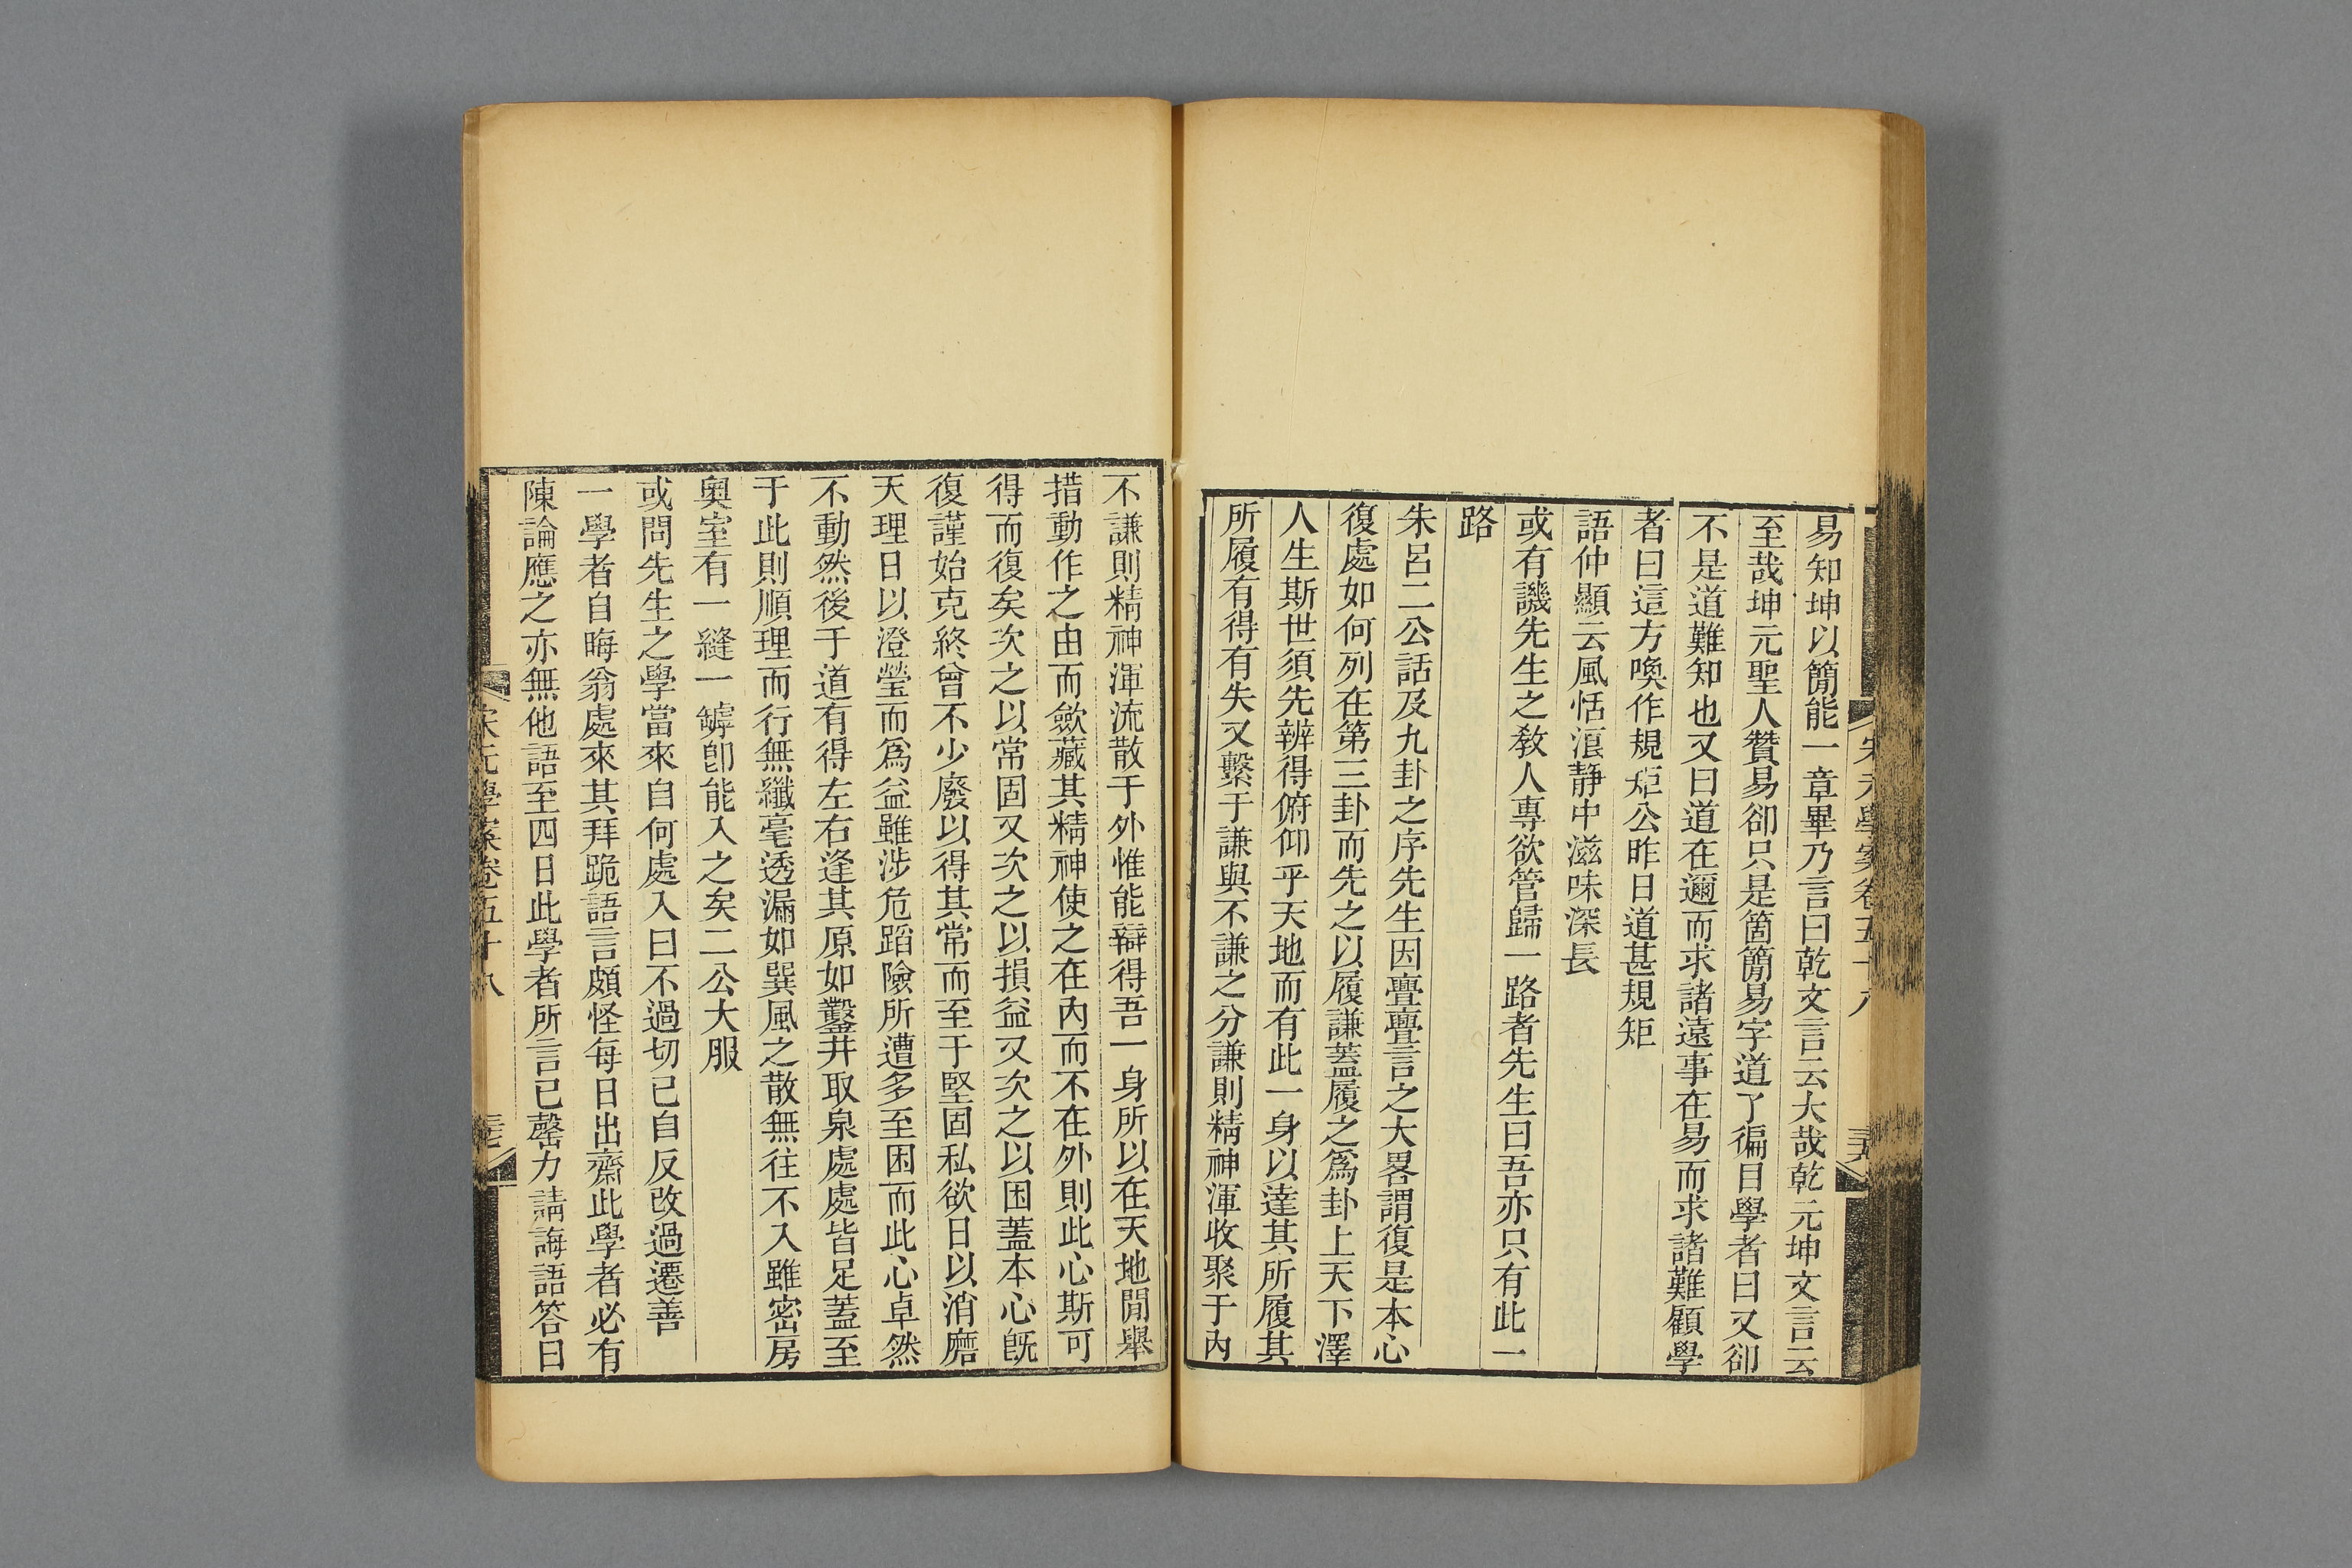 易知坤以簡能一章畢乃言曰乾文言云大哉乾元坤文言云
至哉坤元聖人贊易卻只是箇簡易字道了徧目學者曰又卻
不是道難知也又曰道在邇而求諸遠事在易而求諸難顧學
者曰這方喚作規矩公昨日道甚規矩
語仲顯云風恬浪靜中滋味深長
或有譏先生之敎人專欲管歸一路者先生曰吾亦只有此一
路
朱呂二公話及九卦之序先生因亹亹言之大畧謂復是本心
復處如何列在第三卦而先之以履謙蓋履之爲卦上天下澤
人生斯世須先辨得俯仰乎天地而有此一身以達其所履其
所履有得有失又繫于謙與不謙之分謙則精神渾收聚于內
宋元學案卷五十八
不謙則精神渾流散于外惟能辯得吾一身所以在天地閒舉
措動作之由而斂藏其精神使之在內而不在外則此心斯可
得而復矣次之以常固又次之以損益又次之以困蓋本心旣
復謹始克終曾不少廢以得其常而至于堅固私欲日以消磨
天理日以澄瑩而爲益雖涉危蹈險所遭多至困而此心卓然
不動然後于道有得左右逢其原如鑿井取泉處處皆足蓋至
于此則順理而行無纖毫透漏如巽風之散無往不入雖密房
奧室有一縫一罅卽能入之矣二公大服
或問先生之學當來自何處入曰不過切己自反改過遷善
一學者自晦翁處來其拜跪語言頗怪每日出齋此學者必有
陳論應之亦無他語至四日此學者所言已罄力請誨語答曰
宋元學案卷五十八